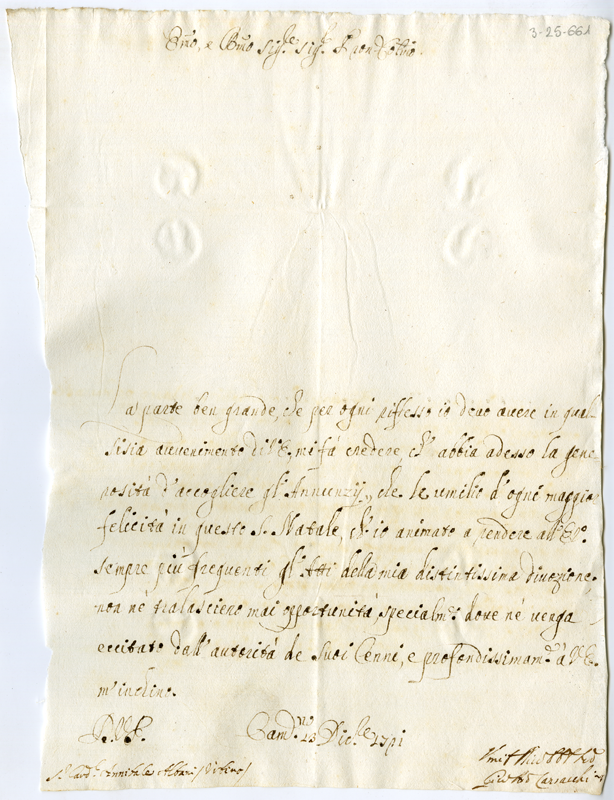 3-25-661
Em̃o, e Rm̃o Sig.e Sig.e Pron̄ Col̃mo
La parte ben grande, che per ogni riflesso io devo avere in qual-
sisia avvenimento di V.E. mi fà credere, ch'abbia adesso la gene
rosità d'accogliere gl'Annunzij, che le umilio d'ogni maggior
felicità in questo S. Natale, ch'io animato a rendere all'E.V.
sempre più frequenti gl'Atti della mia distintissima divozione,
non ne tralascierò mai opportunità specialm.e dove ne venga
eccitato dall'autorità de suoi Cenni, e profondissimam.e à V.E.
m'inchino.
D.V.E.
13 Dic.re
S.r Card.l Annibale Albani / Urbino /